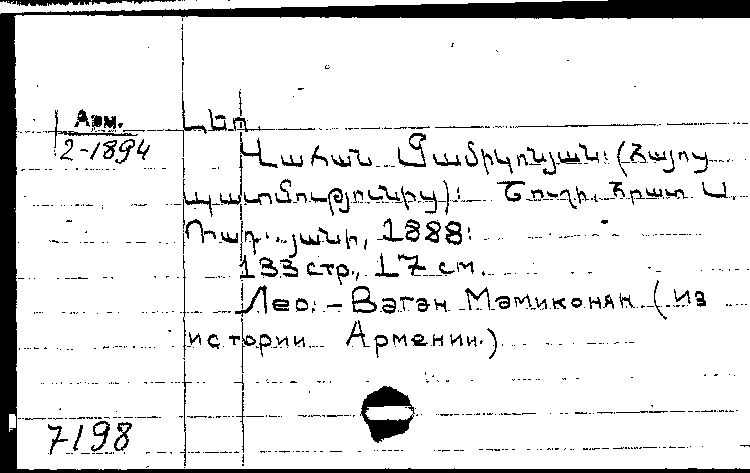 Арм.
2-1894
Լեո
Վահան Մամիկոնյան: (Հայոց
պատմությունից): Շուշի, հրատ Ս.
1888:
133 стр., 17 см.
Лео. - Ваган Мамиконян (из
истории Армении.)
7198